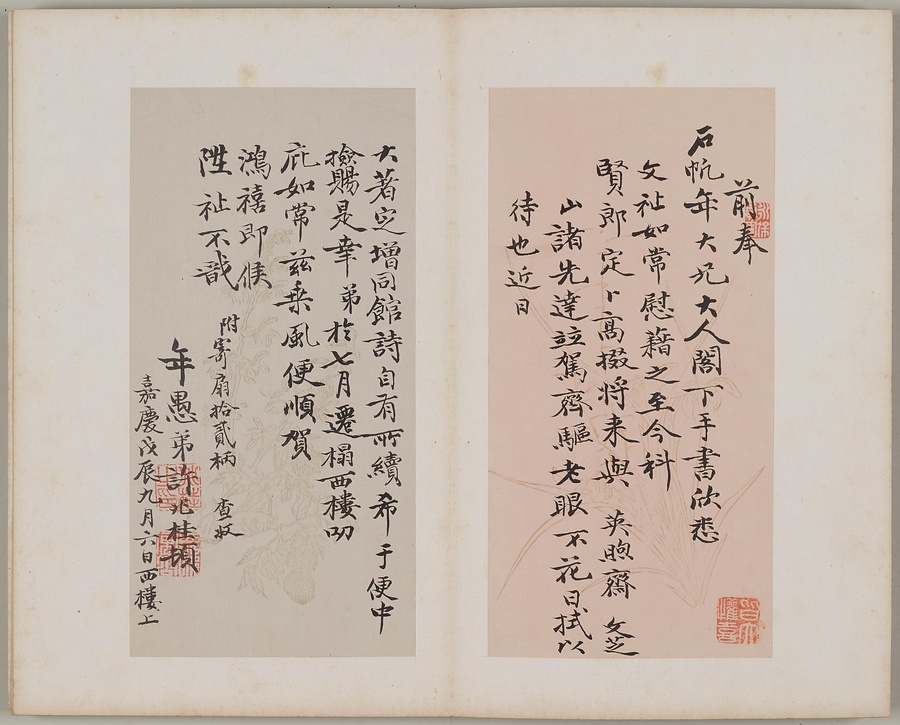 前奉
石帆年大兄大人閣下手書欣悉
文祉如常慰藉之至今科
賢郎定卜高掇将来與 英煦齋 文芝
山諸先達竝駕齊驅老眼不花日拭以
待也近日
大著定增同館詩自有所續希于便中
撿賜是幸 弟於七月遷榻西樓叨
庇如常兹乗風便順賀
鴻禧即候
陞祉不戩
附寄扇拾貳柄 查收
年愚弟許兆桂頓
嘉慶戊辰九月六日西樓上
皆大
歡喜